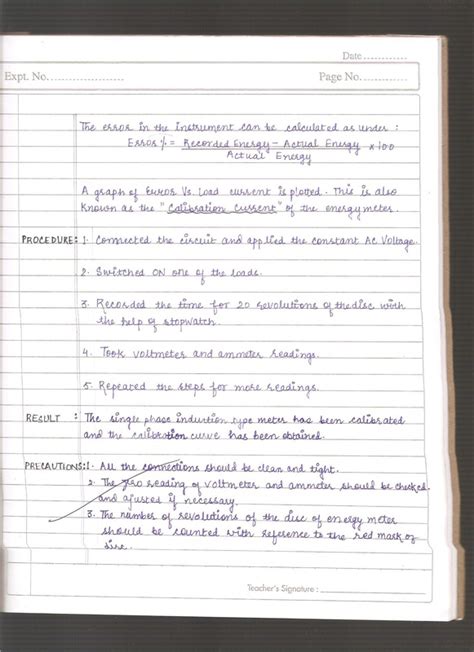 Date............
Expt. No......................
Page No............
The error in the Instrument can be calculated as under :
Error % = Recorded Energy - Actual Energy x100
Actual Energy
A graph of Error Vs. Load current is plotted. This is also
known as the "Calibration Current" of the energy meter.
PROCEDURE: 1. Connected the circuit and applied the constant AC Voltage.
2. Switched ON one of the loads.
3. Recorded the time for 20 revolutions of the disc with
the help of stopwatch.
4. Took voltmeter and ammeter readings.
5. Repeated the steps for more readings.
RESULT : The single phase induction type meter has been calibrated
and the calibration curve has been obtained.
PRECAUTIONS: 1. All the connections should be clean and tight.
2. The zero reading of voltmeter and ammeter should be checked
and ajusted if necessary.
3. The number of revolutions of the disc of energy meter
should be counted with reference to the red mark of
disc.
Teacher's Signature :